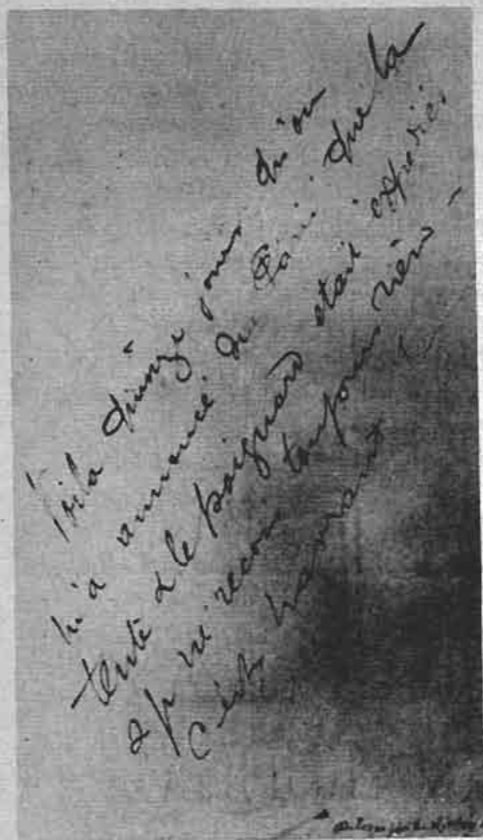 Voila quinze jours qu'on
m'a annoncé de Paris que la
tente & le poignard etait expédiés
& je ne recois toujours rien –
C'est